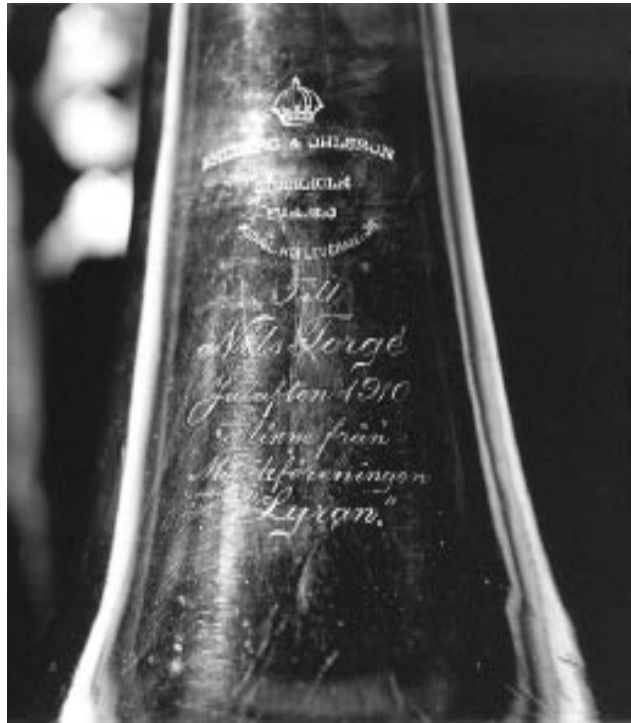 AHLBERG & OHLSSON
STOCKHOLM
KONGL. HOFLEVERANTÖR
Till
Nils Torgé
Julafton 1910
Minne från
Musikföreningen
"Lyran."